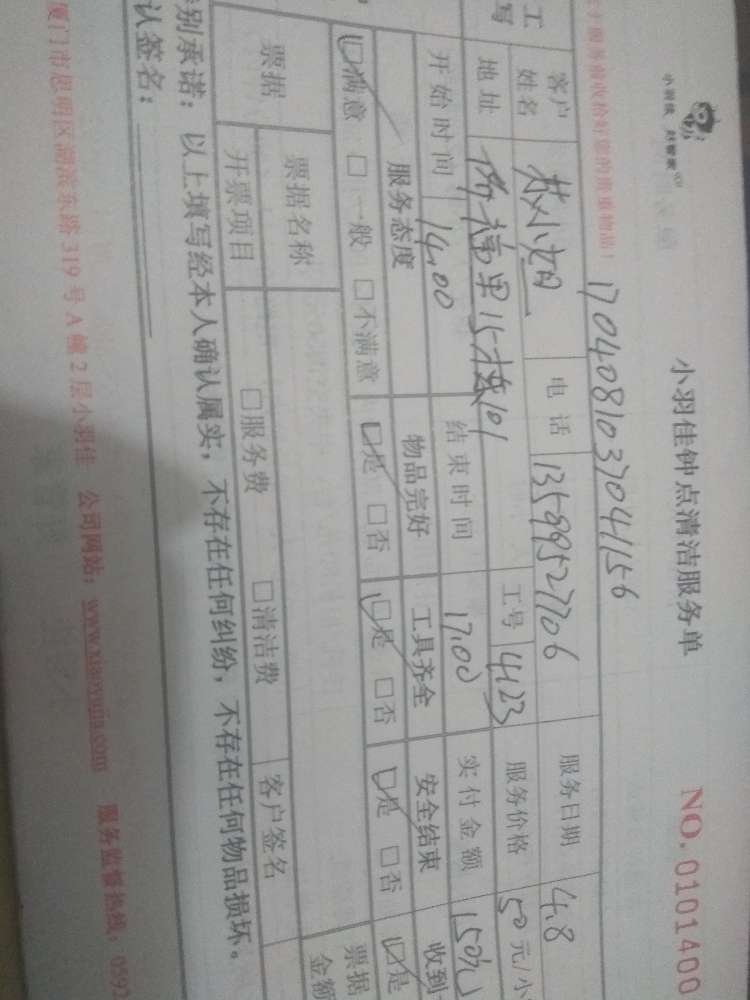 小羽佳 好管家
小羽佳钟点清洁服务单
NO.0101400
服务前请收拾好您的贵重物品!
1704081037041156
客户姓名 小姐 电话 13589527706 服务日期 4.8
地址 15楼101 工号 4123 服务价格 50元/小
开始时间 14.00 结束时间 17.00 实付金额 150元
服务态度 物品完好 工具齐全 安全结束 收到
☑满意 □一般 □不满意 ☑是 □否 ☑是 □否 ☑是 □否 ☑是
票据 票据名称 票据金额
开票项目 □服务费 □清洁费 客户签名
别承诺:以上填写经本人确认属实,不存在任何纠纷,不存在任何物品损坏。
认签名:
厦门市思明区湖滨东路319号A幢2层小羽佳 公司网站:www.xiaoyujia.com 服务监督热线:0592